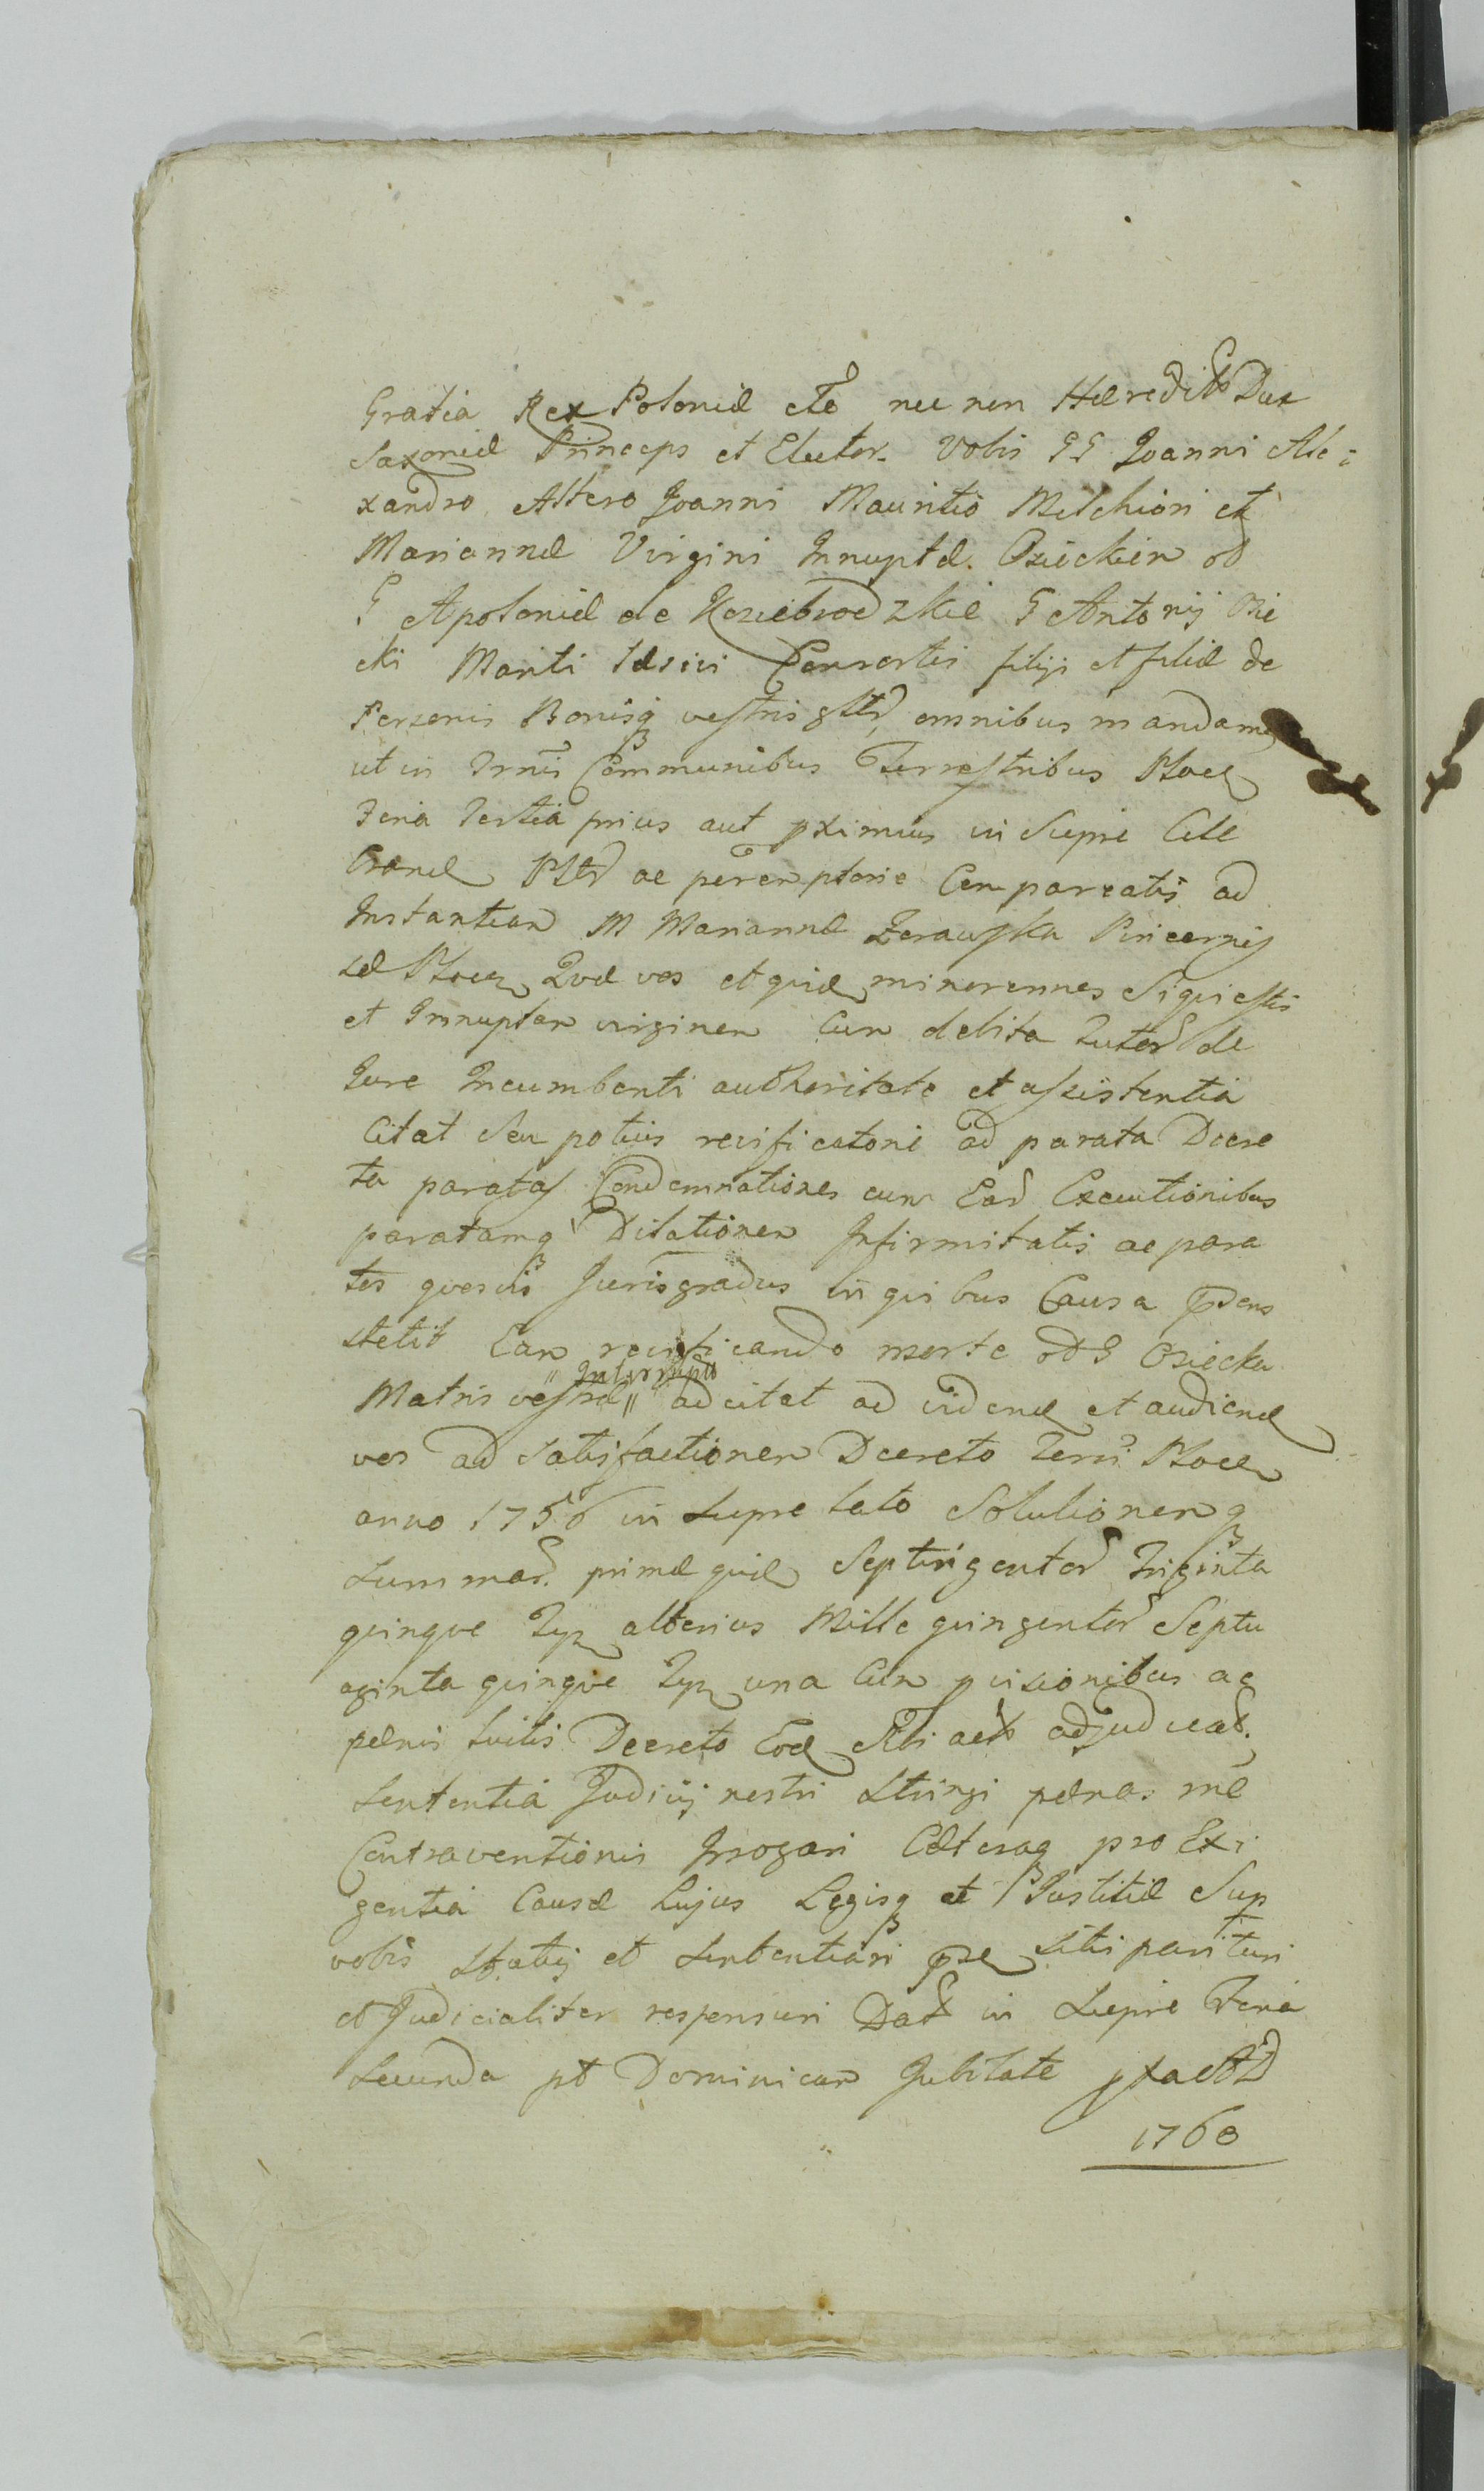 Gratia Rex Poloniæ etc nec non Hæredit Dux
Saxoniæ Princeps et Elector. Vobis GG Joanni Ale:
xandro Altero Joanni Mauritio Melchiori et
Mariannæ Virgini Innuptæ. Osieckim od
G Apoloniæ de Koziebrodzkie G Antonij Osie
cki Mariti Consortis filijs et filiæ de
Personis Bonisq vestris gltr omnibus mandamg
ut in Trnis Communibus Terrestribus Plocen
Feria Tertia prius aut pximius in Sieprc Cele
brand Pltr ac peremptorie Compareatis ad
Instantiam M Mariannæ Zerawska Pincernis
sæ Plocen Qvæ vos et quid minorennes Siqui estis
et Innuptam virginem Cum debita Tutor de
Jure Incumbenti authoritate et assistentia
Citat Seu potius reificatorie ad parata Decre
ta paratas Condemnationes cum Ear Executionibus
paratamq Dilationem Infirmitatis ac para
tos qvosvis Jurisgradus in quibus Causa pdens
stetit Eam reificando morte od G Osiecka
Matris vestræ " Interrupto " adcitat ad videnđ et audienđ
vos ad Satisfactionem Decreto Terri Plocen
anno 1756 in Sieprc lato Solutionemq
Summar. primæ quid Septingentor Triginta
quinqve Typ alterius Mille quingentor Septu
aginta quinqve Typ una Cum pvisionibus ac
pænis luitis Decreto Eod Rti act adjudicat.
Sententia Judicij nostri Stringi pænas rne
Contraventionis Irrogari Cæteraq pro Exi
gentia Causæ hujus Legisq et Justitiæ Sup
vobis Statuj et Sententiari pse Sitis parituri
et Judicialiter responsuri Dat in Sieprc Feria
Secunda pt Dominicam Jubilate pxa AD
1760